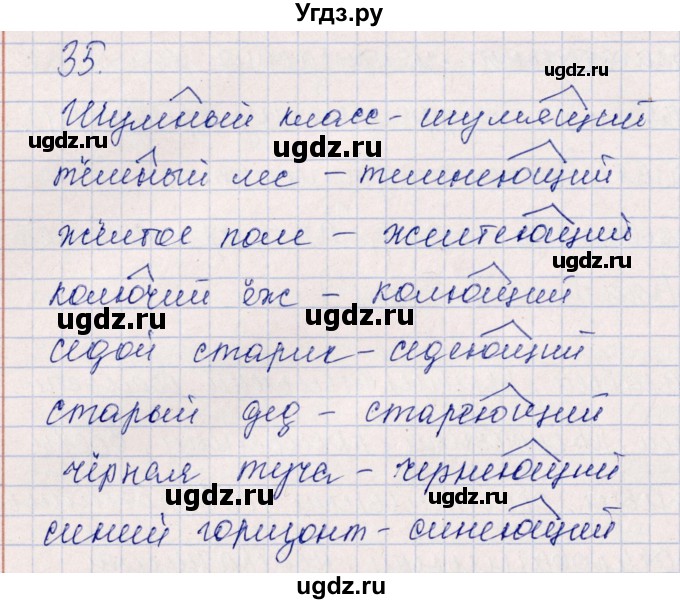 Угдз.ру
35.
ugdz.ru
Шумный класс - шумящий
ugdz.ru
ugdz.ru
тёмный лес - темнеющий
ugdz.ru
жёлтое поле - желтеющий
ugdz.ru
колючий ёж - колющий
ugdz.ru
ugdz.ru
седой старик - седеющий
старый дед - стареющий
ugdz.ru
ugdz.ru
чёрная туча - чернеющий
ugdz.ru
ugdz.ru
синий горизонт - синеющий
ugdz.ru